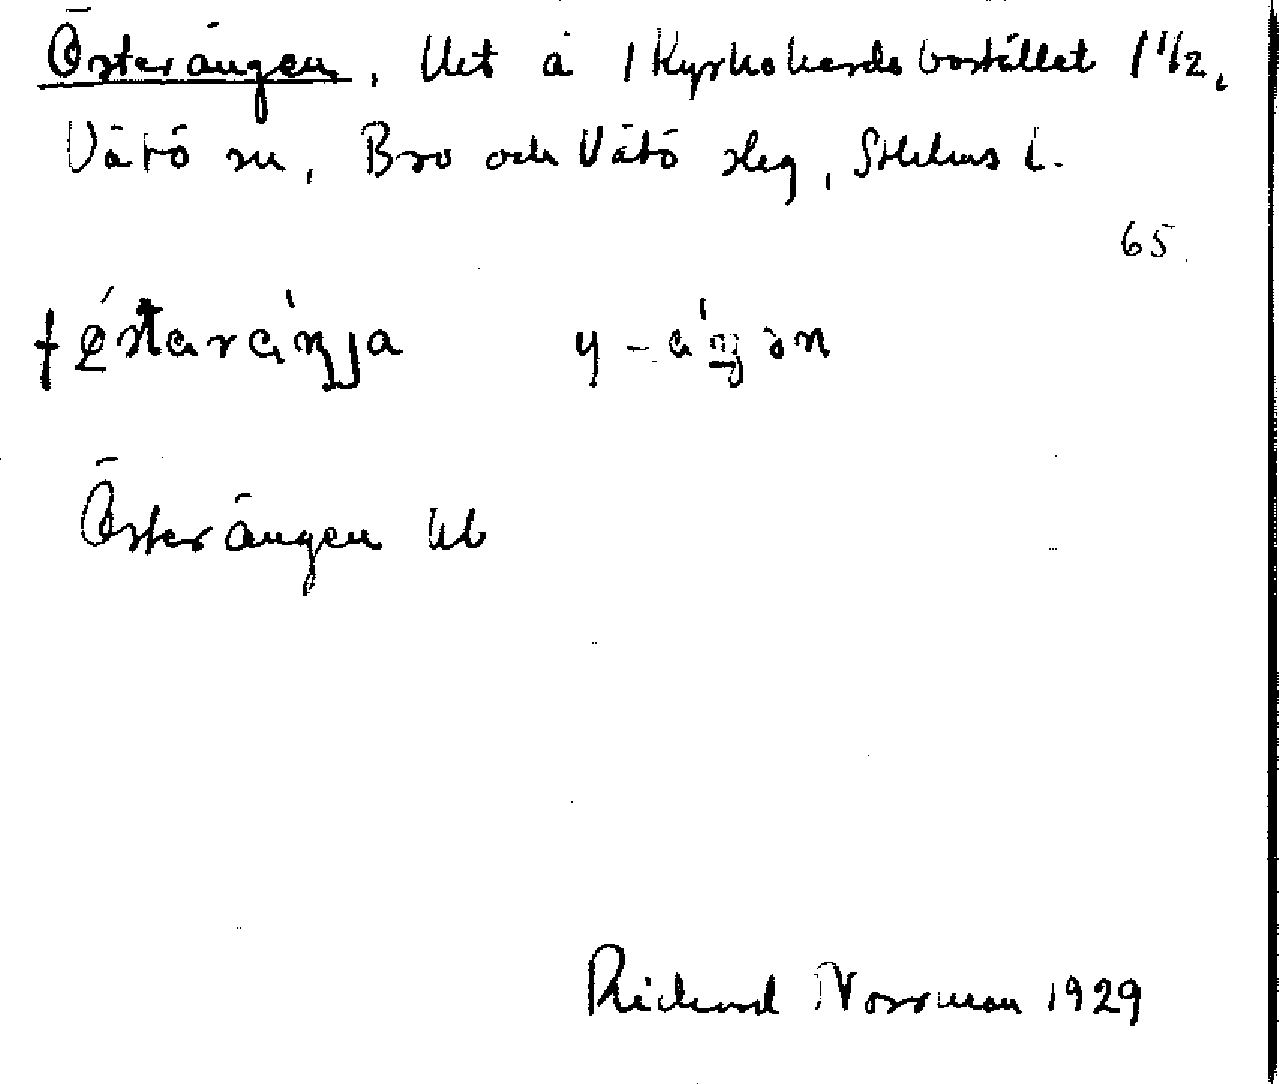 Österängen, Uet å 1 Kyrkoherdebostället 1 1/2,
Vätö sn, Bro och Vätö skg, Sthlms l.
65
y -
Österängen Ub
Richard Norrman 1929